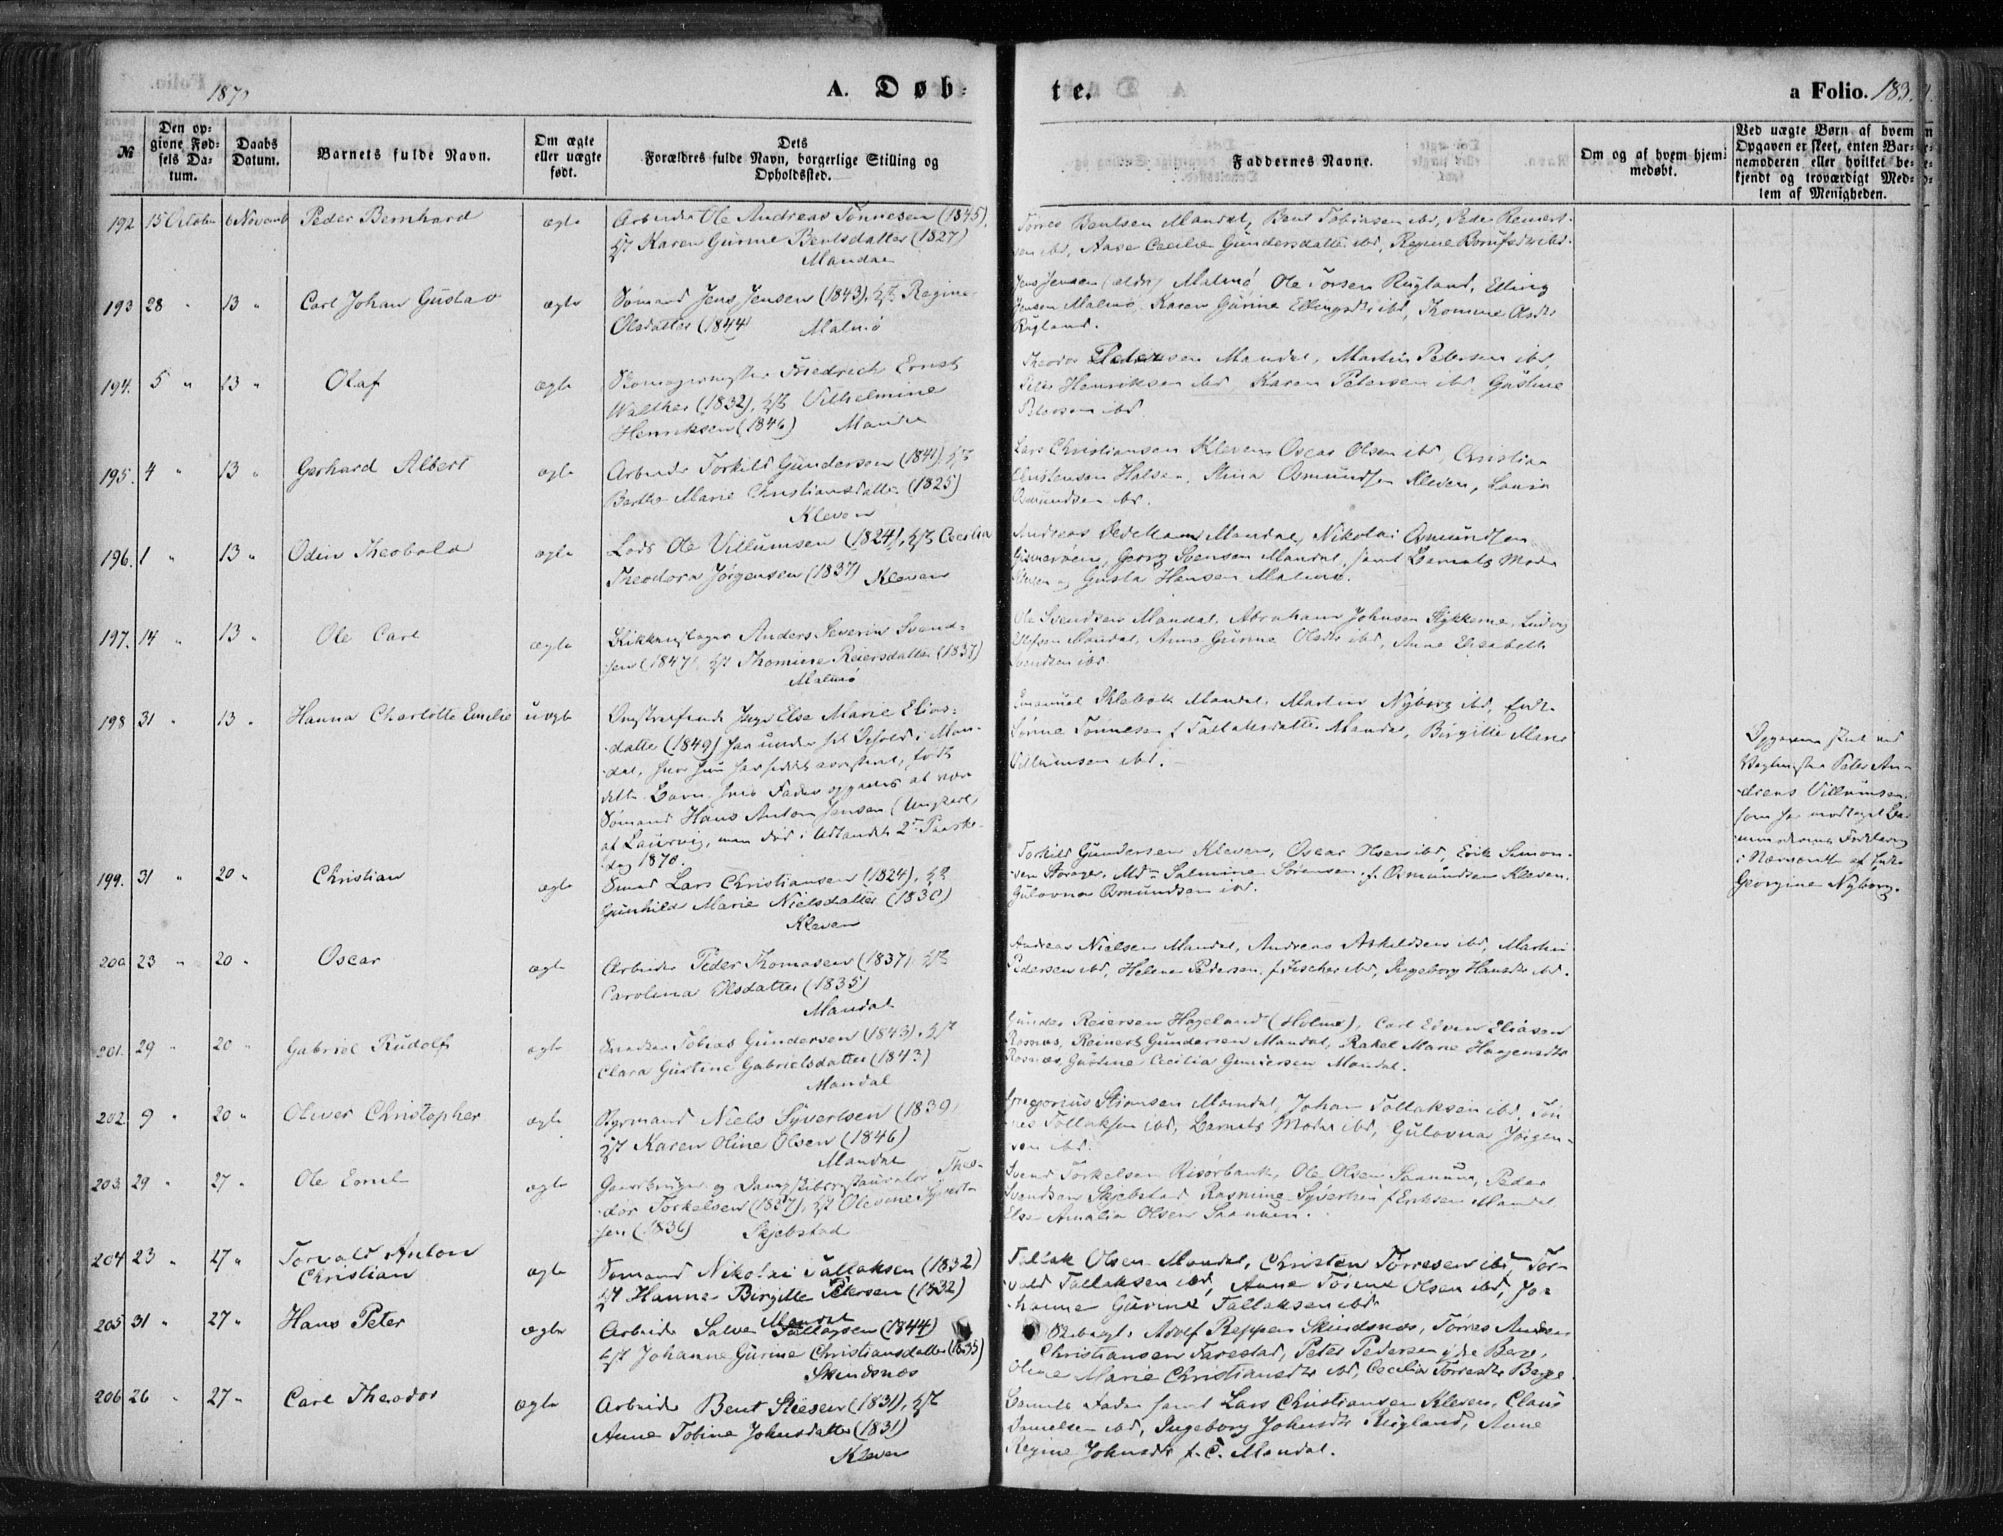 187
A. Døb=
te.
a Folio. 183.
№
Den op=
givne Fød=
sels Da=
tum.
Daabs
Datum.
Barnets fulde Navn.
Om ægte
eller uægte
født.
Dets
Forældres fulde Navn, borgerlige Stilling og
Opholdssted.
Faddernes Navne.
Om og af hvem hjem=
medøbt.
Ved uægte Børn af hvem
Opgaven er skeet, enten Bar=
nemoderen eller hvilket be=
kjendt og troværdigt Med=
lem af Menigheden.
192 15 October 6 Novemb Peder Bernhard ægte Arbeider Ole Andreas Tønnesen (1845),
Karen Gurine Bentsdatter (1827)
Mandal
Tørres Bentsen Mandal, Bent Tobiasen ibd, Peder Reinert-
sen ibd, Aase Cecilie Gundersdatter ibd, Regine
193 28 " 13 " Carl Johan Gustav ægte Sømand Jens Jensen (1843), Regine
Olsdatter (1844) Malmø
Jens Jensen (ældr) Malmø, Ole Torsen Rugland, Elling
Jensen Malmø, Karen Gurine Ellingsdtr ibd, Thomine Olsdtr
Rugland.
194. 5 " 13 " Olaf ægte Skomagermester Friedrich Ernst
Walther (1832), Vilhelmine
Henriksen (1846) Mandal
Theodor Petersen Mandal, Martin Petersen ibd,
Peter Henriksen ibd, Karen Petersen ibd, Gustine
Petersen ibd
195. 4 " 13 " Gerhard Albert ægte Arbeider Torkild Gundersen (1841),
Berthe Marie Christiansdatter (1825)
Kleven
Lars Christiansen Kleven, Oscar Olsen ibd, Christian
Christensen Halsen, Stina Osmundsen Kleven,
Osmundsen ibd.
196. 1 " 13 " Odin Theobald ægte Lods Ole Villumsen (1824), Cecilia
Theodora Jørgensen (1837) Kleven
Andreas Mandal, Nikolai Osmundsen
Georg Svensen Mandal, samt Barnets Moder
og Gusta Hansen Malmø.
197. 14 " 13 " Ole Carl ægte Anders Severin Svend=
sen (1847), Thomine Reiersdatter (1837)
Malmø
Ole Svendsen Mandal, Abraham Johnsen Stykkerne, Ludvig
Mandal, Anne Gurine Olsdtr ibd, Anne Elisabeth
Svendsen ibd.
198 31 " 13 " Hanna Charlotte Emelie uægte Else Marie Elias=
datter (1849) har under sit Ophold i Man-
dal, hvor hun har siddet arresteret, født
dette Barn, hvis Fader opgives at være
Sømand Hans Anton Jensen (Ungkarl)
af Laurvig, men død i Udlandet 2den Paaske-
dag 1870.
Emanuel Mandal, Martin Nyborg ibd,
Tønnesen f Tallaksdatter Mandal, Birgitte Marie
Villumsen ibd.
Opgaven skeet ved
Vagtmester Peter An-
dreas Villumsen
som har modtaget Bar-
nemoderens Forklaring
i Nærværelse af
Georgine Nyborg.
199. 31 " 20 " Christian ægte Lars Christiansen (1824),
Gunhild Marie Nielsdatter (1830)
Kleven
Torkild Gundersen Kleven, Oscar Olsen ibd, Erik Simon-
sen Storøge, Salmine Sørensen f. Osmundsen Kleven,
Gulovna Osmundsen ibd.
200. 23 " 20 " Oscar ægte Arbeider Peder Thomasen (1837),
Carolina Olsdatter (1835)
Mandal
Andreas Nielsen Mandal, Andreas Askildsen ibd, Martin
Pedersen ibd, Helene Pedersen f Fischer ibd, Ingeborg Hansdtr ibd.
201. 29 " 20 " Gabriel Rudolf ægte Snedker Tobias Gundersen (1843),
Clara Gustine Gabrielsdatter (1843)
Mandal
Gunder Reiersen Hageland (Holme), Carl Edvin Eliasen
Rosnæs, Reinert Gundersen Mandal, Rakel Marie Haagensdtr
Rosnæs, Gustine Cecilia Gundersen Mandal.
202. 9 " 20 " Oliver Christopher ægte Styrmand Niels Syvertsen (1839)
Karen Oline Olsen (1846)
Mandal
Gregorius Stiansen Mandal, Johan Tallaksen ibd, Tøn-
nes Tallaksen ibd, Barnets Moder ibd, Gulovna Jørgen-
sen ibd.
203. 29 " 27 " Ole Emil ægte Gaardbruger og Dampskibsrestauratør Theo-
dor Torkelsen (1837), Olevine Syvert-
sen (1836) Skjebstad
Svend Torkelsen Risørbank, Ole Olsen Saanum, Peder
Svendsen Skjebstad, Rasmine Syvertsen f Eriksen Mandal
Else Amalia Olsen Saanum.
204 23 " 27 " Torvald Anton
Christian ægte Sømand Nikolai Tallaksen (1832)
Hanne Birgitte Petersen (1832)
Mandal
Tallak Olsen Mandal, Christen Tørresen ibd, Tor-
vald Tallaksen ibd, Anne Torine Olsen ibd, Jo-
hanne Gurine Tallaksen ibd
205 31 " 27 " Hans Peter ægte Arbeider Salve Tallaksen (1844)
Johanne Gurine Christiansdatter (1835)
Skindsnæs
Adolf Reppen Skindsnæs, Tørres Andreas
Christiansen Farestad, Peter Pedersen Berge,
Oline Marie Christiansdtr ibd, Cecilia Torresdtr Berge
206 26 " 27 " Carl Theodor ægte Arbeider Bent Stiesen (1831),
Anne Tobine Johnsdatter (1831)
Kleven
Barnets Fader samt Lars Christiansen Kleven, Claus
Danielsen ibd, Ingeborg Johnsdtr Rugland, Anne
Regine Johnsdtr f. T. Mandal.